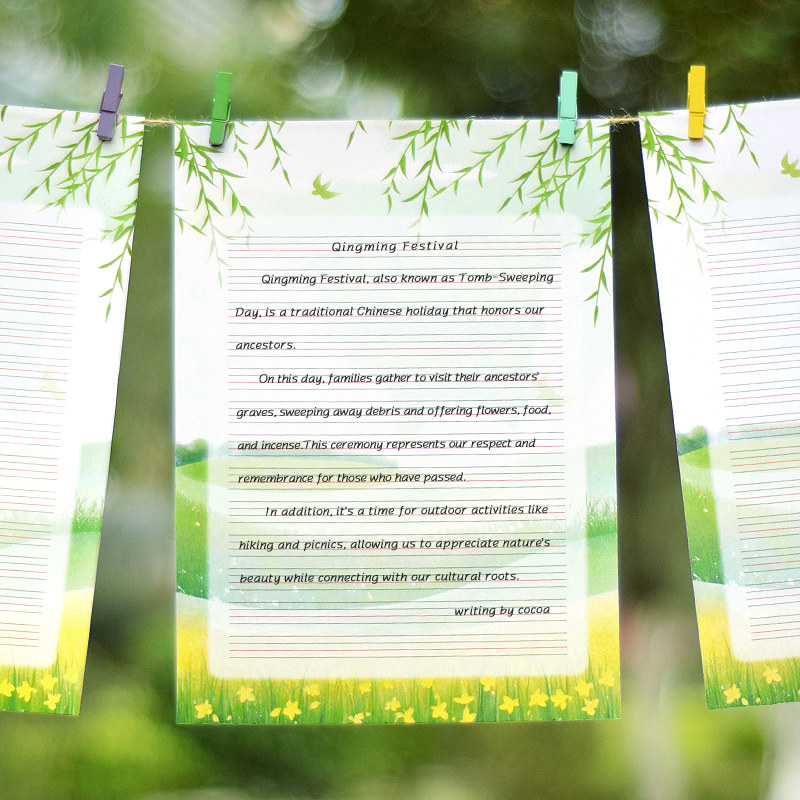 Qingming Festival
Qingming Festival, also known as Tomb-Sweeping
Day, is a traditional Chinese holiday that honors our
ancestors.
On this day, families gather to visit their ancestors'
graves, sweeping away debris and offering flowers, food,
and incense.This ceremony represents our respect and
remembrance for those who have passed.
In addition, it's a time for outdoor activities like
hiking and picnics, allowing us to appreciate nature's
beauty while connecting with our cultural roots.
writing by cocoa